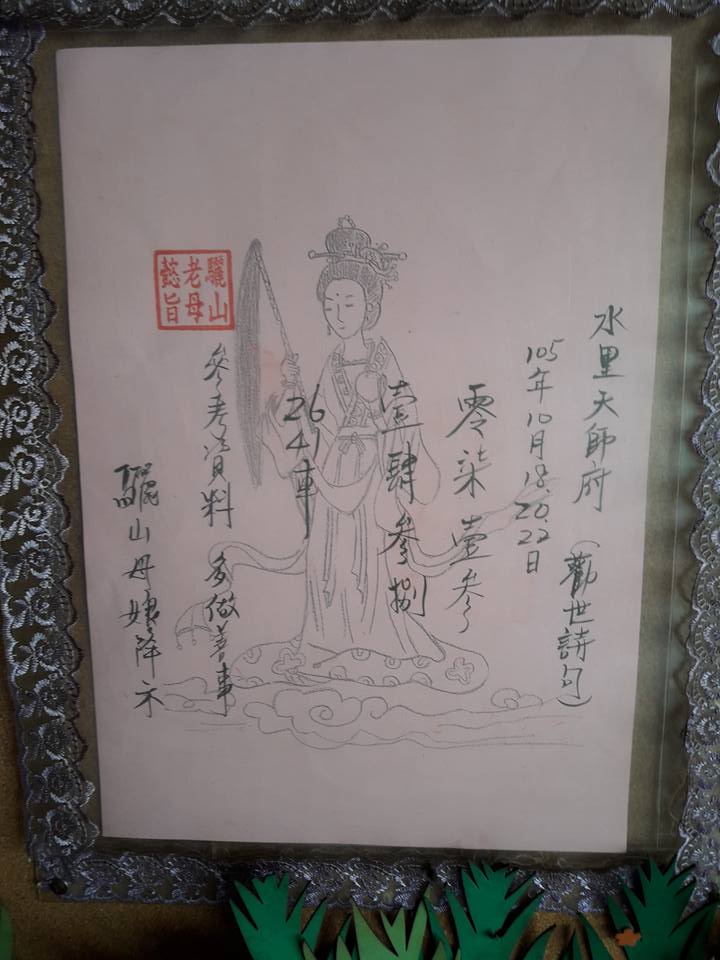 水里天師府(勸世詩句)
105年10月18.20.22日
零柒 壹叁
壹肆 叁捌
26 41車
參考資料 多做善事
驪山母娘降示
驪山老母懿旨